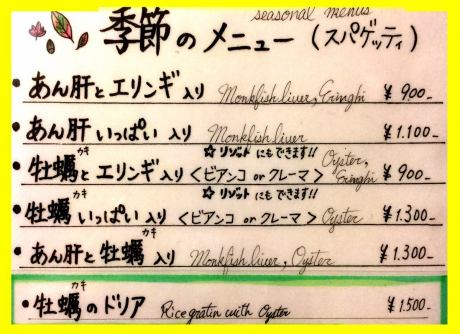 seasonal menus
季節のメニュー(スパゲッティ)
• あん肝とエリンギ入り Monkfish liver, Eringhi ¥900-
• あん肝いっぱい入り Monkfish liver ¥1.100-
☆リゾットにもできます!!
• 牡蠣(カキ)とエリンギ入り<ビアンコ or クレーマ> Oyster, Eringhi ¥900-
☆リゾットにもできます!!
• 牡蠣(カキ)いっぱい入り<ビアンコ or クレーマ> Oyster ¥1.300-
• あん肝と牡蠣(カキ)入り Monkfish liver, Oyster ¥1.300-
• 牡蠣(カキ)のドリア Rice gratin with Oyster ¥1500-